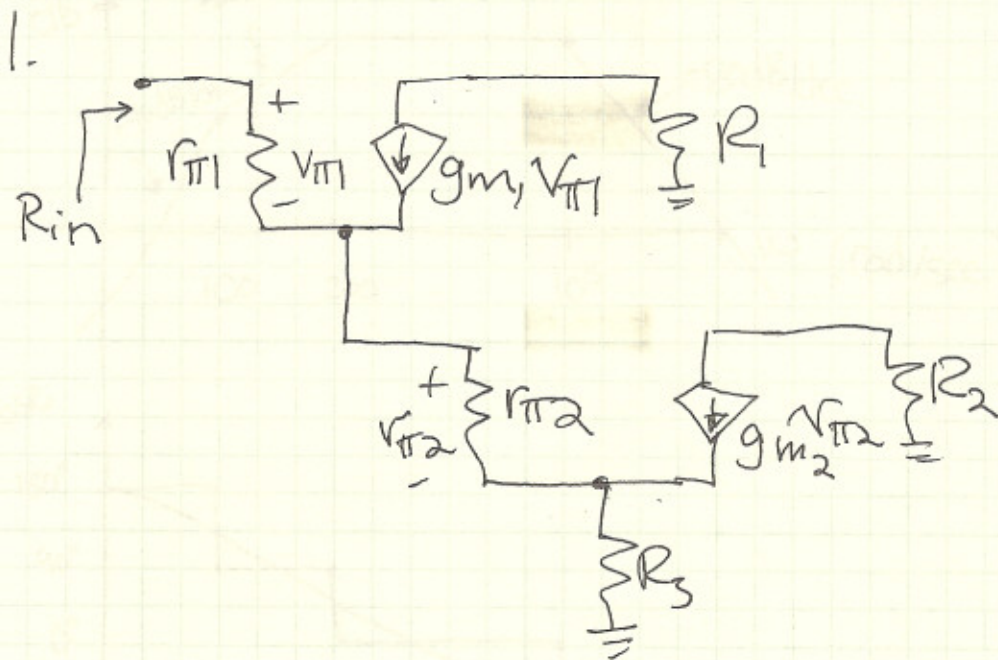 1.
Rin
rπ1
+
Vπ1
-
gm1 Vπ1
R1
+
Vπ2
-
rπ2
gm2 Vπ2
R2
R3